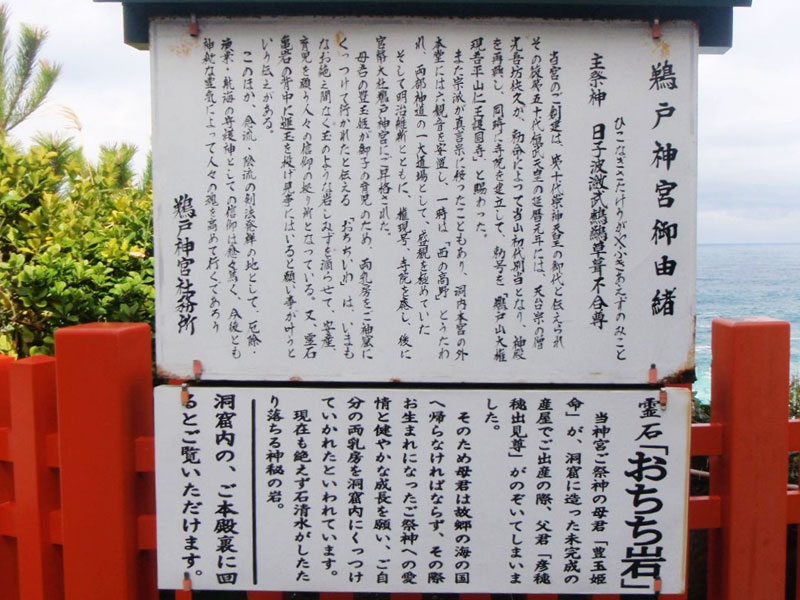 鵜戸神宮御由緒
ひこなぎさたけうがやふきあえずのみこと
主祭神 日子波瀲武鸕鷀草葺不合尊
当宮のご創建は、第十代崇神天皇の御代と伝えられ
その後第五十代桓武天皇の延暦元年には、天台宗の僧
光喜坊快久が、勅命によって当山初代別当となり、神殿
を再興し、同時に寺院を建立して、勅号を「鵜戸山大権
現吾平山仁王護国寺」と賜わった。
また宗派が真言宗に移ったこともあり、洞内本宮の外
本堂には六観音を安置し、一時は「西の高野」とうたわ
れ、両部神道の一大道場として、盛観を極めていた
そして明治維新とともに、権現号、寺院を廃し、後に
官幣大社鵜戸神宮にご昇格された。
母君の豊玉姫が御子の育児のため、両乳房をご神窟に
くっつけて行かれたと伝える「おちちいわ」は、いまも
なお絶え間なく玉のような岩しみずを滴らせて、安産、
育児を願う人々の信仰の拠り所となっている。又、霊石
亀岩の背中に運玉を投げ見事にはいると願い事が叶うと
いう伝えがある。
このほか、念流・陰流の剣法発祥の地として、厄除・
漁業・航海の守護神としての信仰は愈々篤く、今後とも
神秘な霊気によって人々の魂を高めて行くであろう
鵜戸神宮社務所
霊石「おちち岩」
当神宮ご祭神の母君「豊玉姫
命」が、洞窟に造った未完成の
産屋でご出産の際、父君「彦穂
穂出見尊」がのぞいてしまいま
した。
そのため母君は故郷の海の国
へ帰らなければならず、その際
お生まれになったご祭神への愛
情と健やかな成長を願い、ご自
分の両乳房を洞窟内にくっつけ
ていかれたといわれています。
現在も絶えず石清水がしたた
り落ちる神秘の岩。
洞窟内の、ご本殿裏に回
るとご覧いただけます。